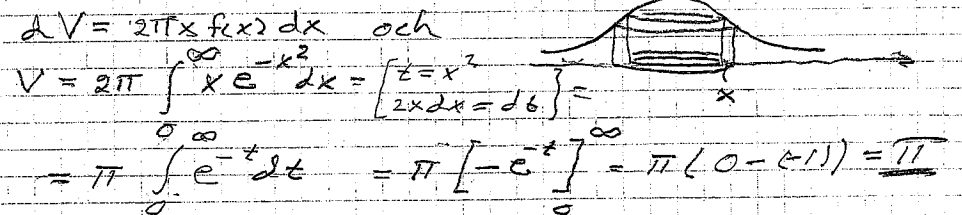 dV = 2πx f(x) dx och
V = 2π ∫₀^∞ x e^{-x²} dx = [t = x², 2x dx = dt] =
x
= π ∫₀^∞ e^{-t} dt = π [-e^{-t}]₀^∞ = π(0 - (-1)) = π